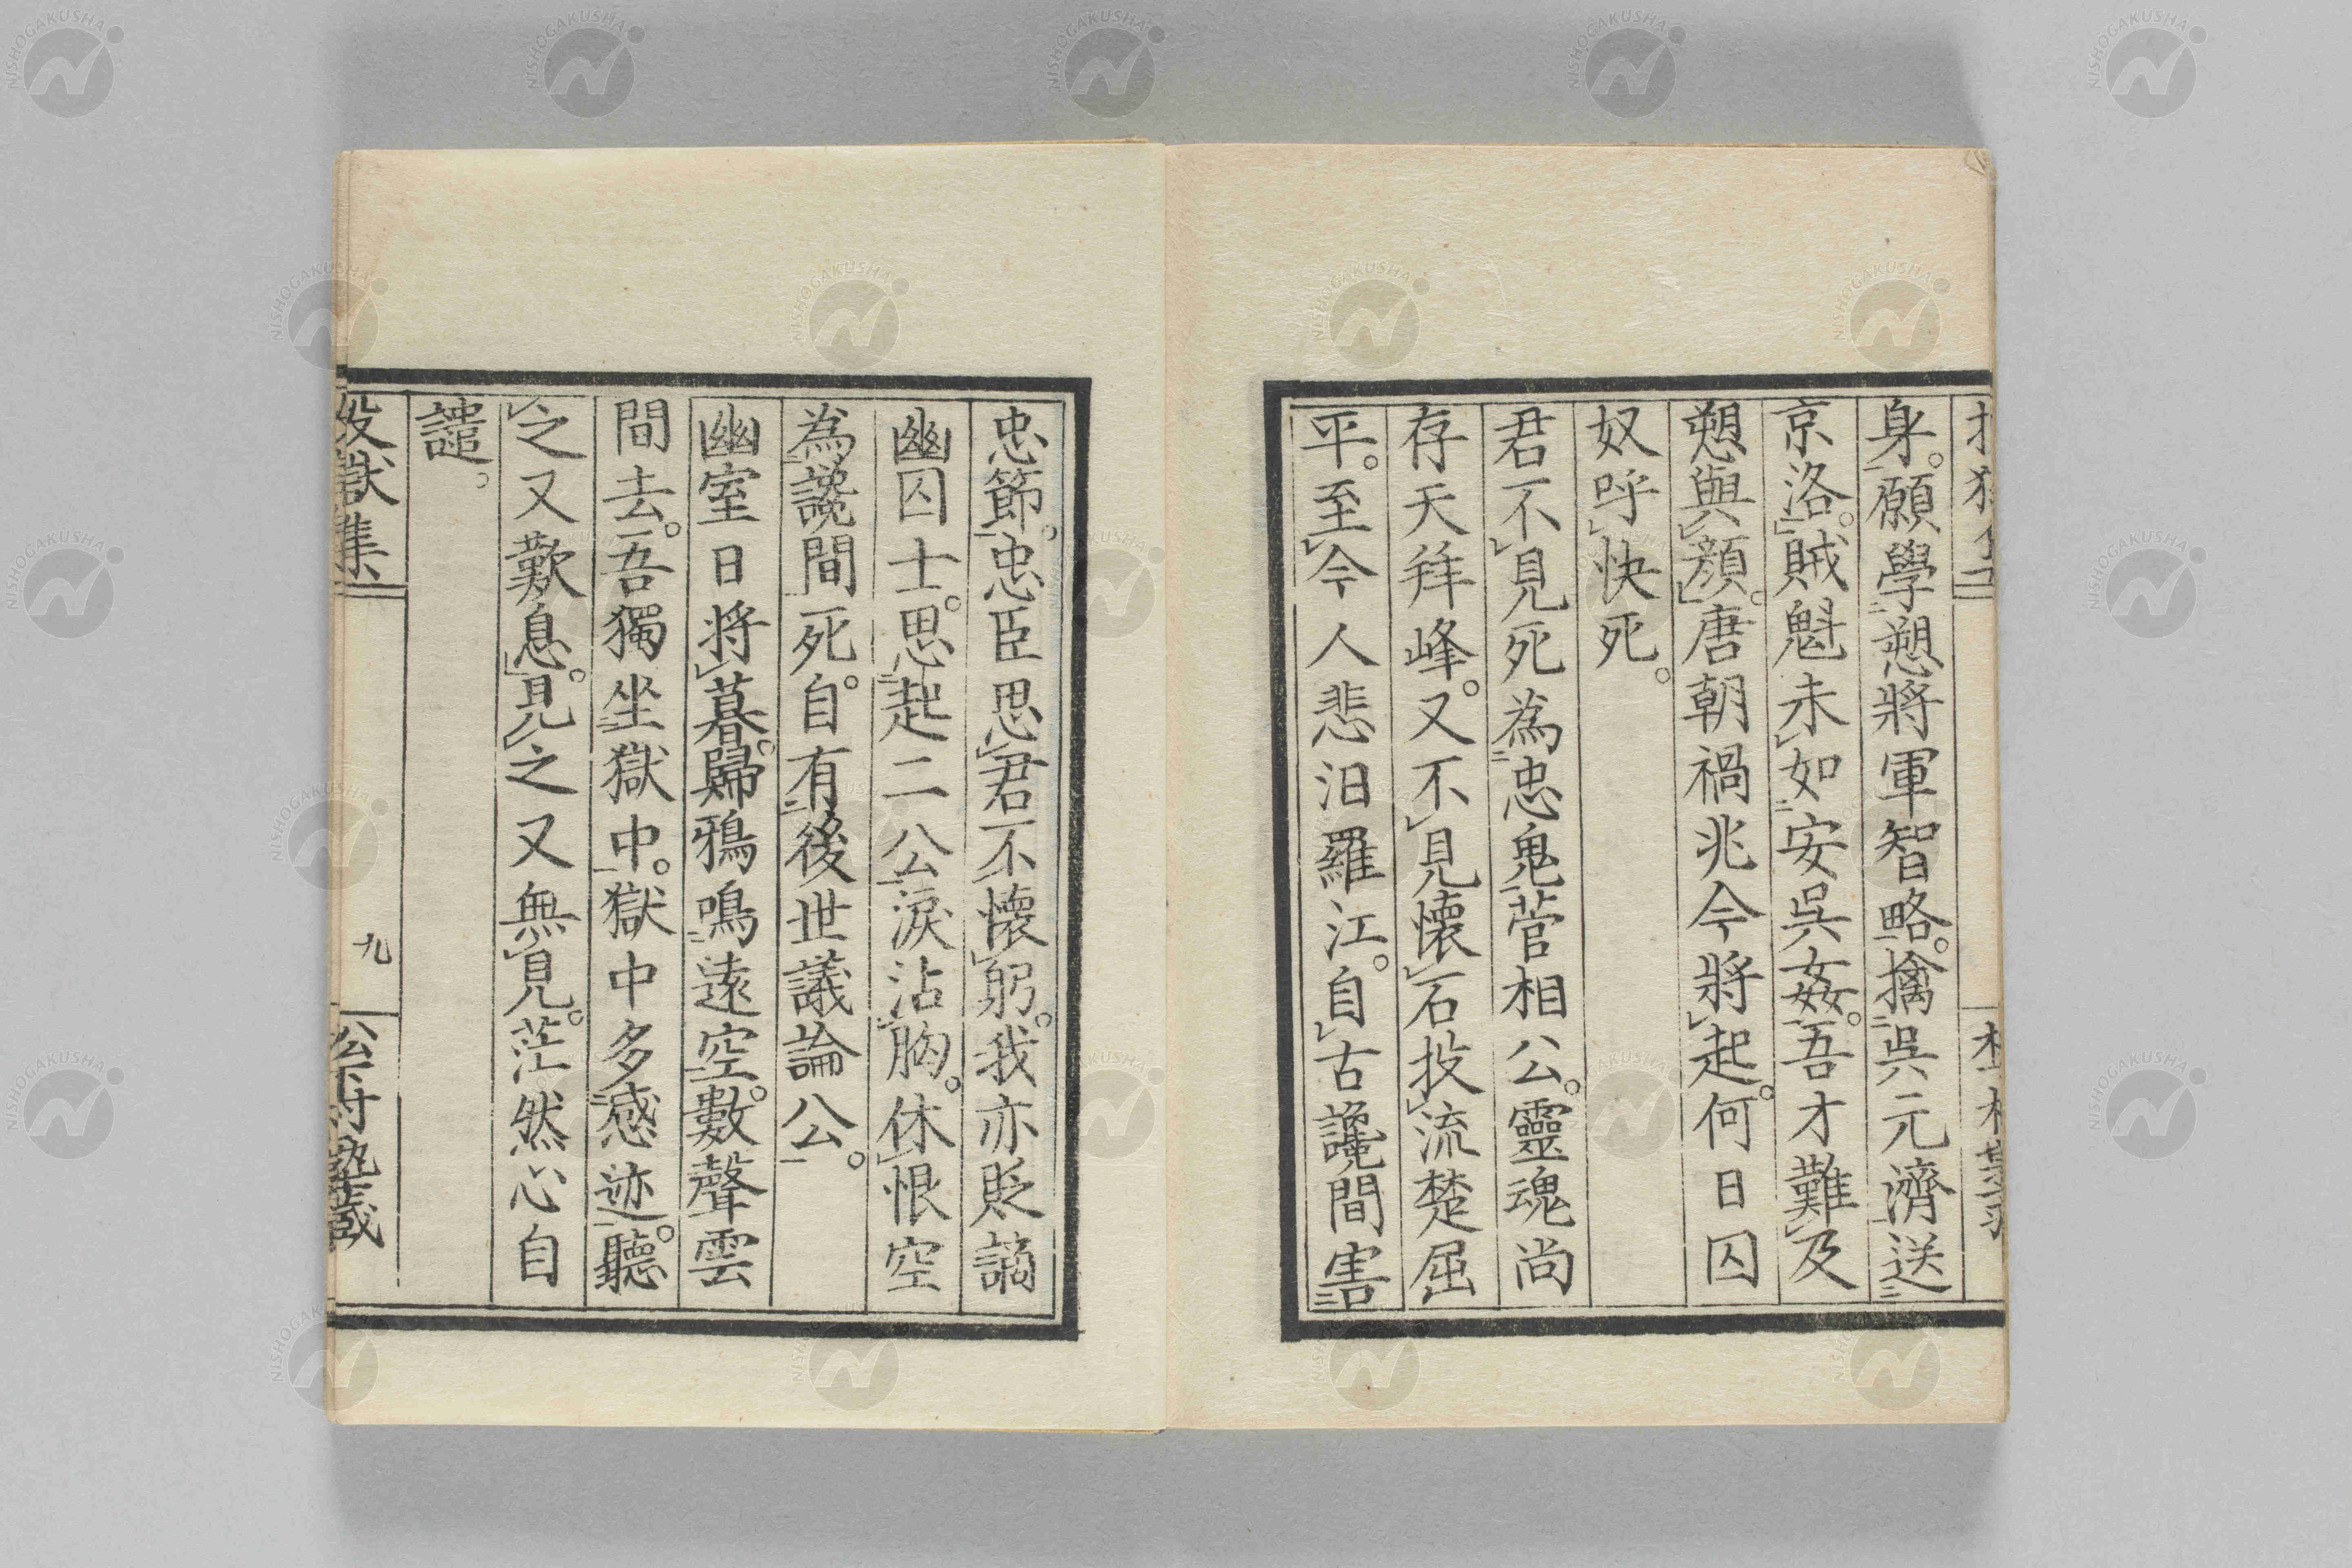 身。願學愬將軍智略。擒吳元濟送
京洛。賊魁未如安吳姦。吾才難及
愬與顏。唐朝禍兆今將起。何日囚
奴呼快死。
君不見死為忠鬼菅相公。靈魂尚
存天拜峰。又不見懷石投流楚屈
平。至今人悲汨羅江。自古讒間害
忠節。忠臣思君不懷躬。我亦貶謫
幽囚士。思起二公淚沾胸。休恨空
為讒間死。自有後世議論公。
幽室日將暮。歸鴉鳴遠空。數聲雲
間去。吾獨坐獄中。獄中多感迹。聽
之又歎息。見之又無見。茫然心自
譴。
投獄集
九
NISHOGAKUSHA